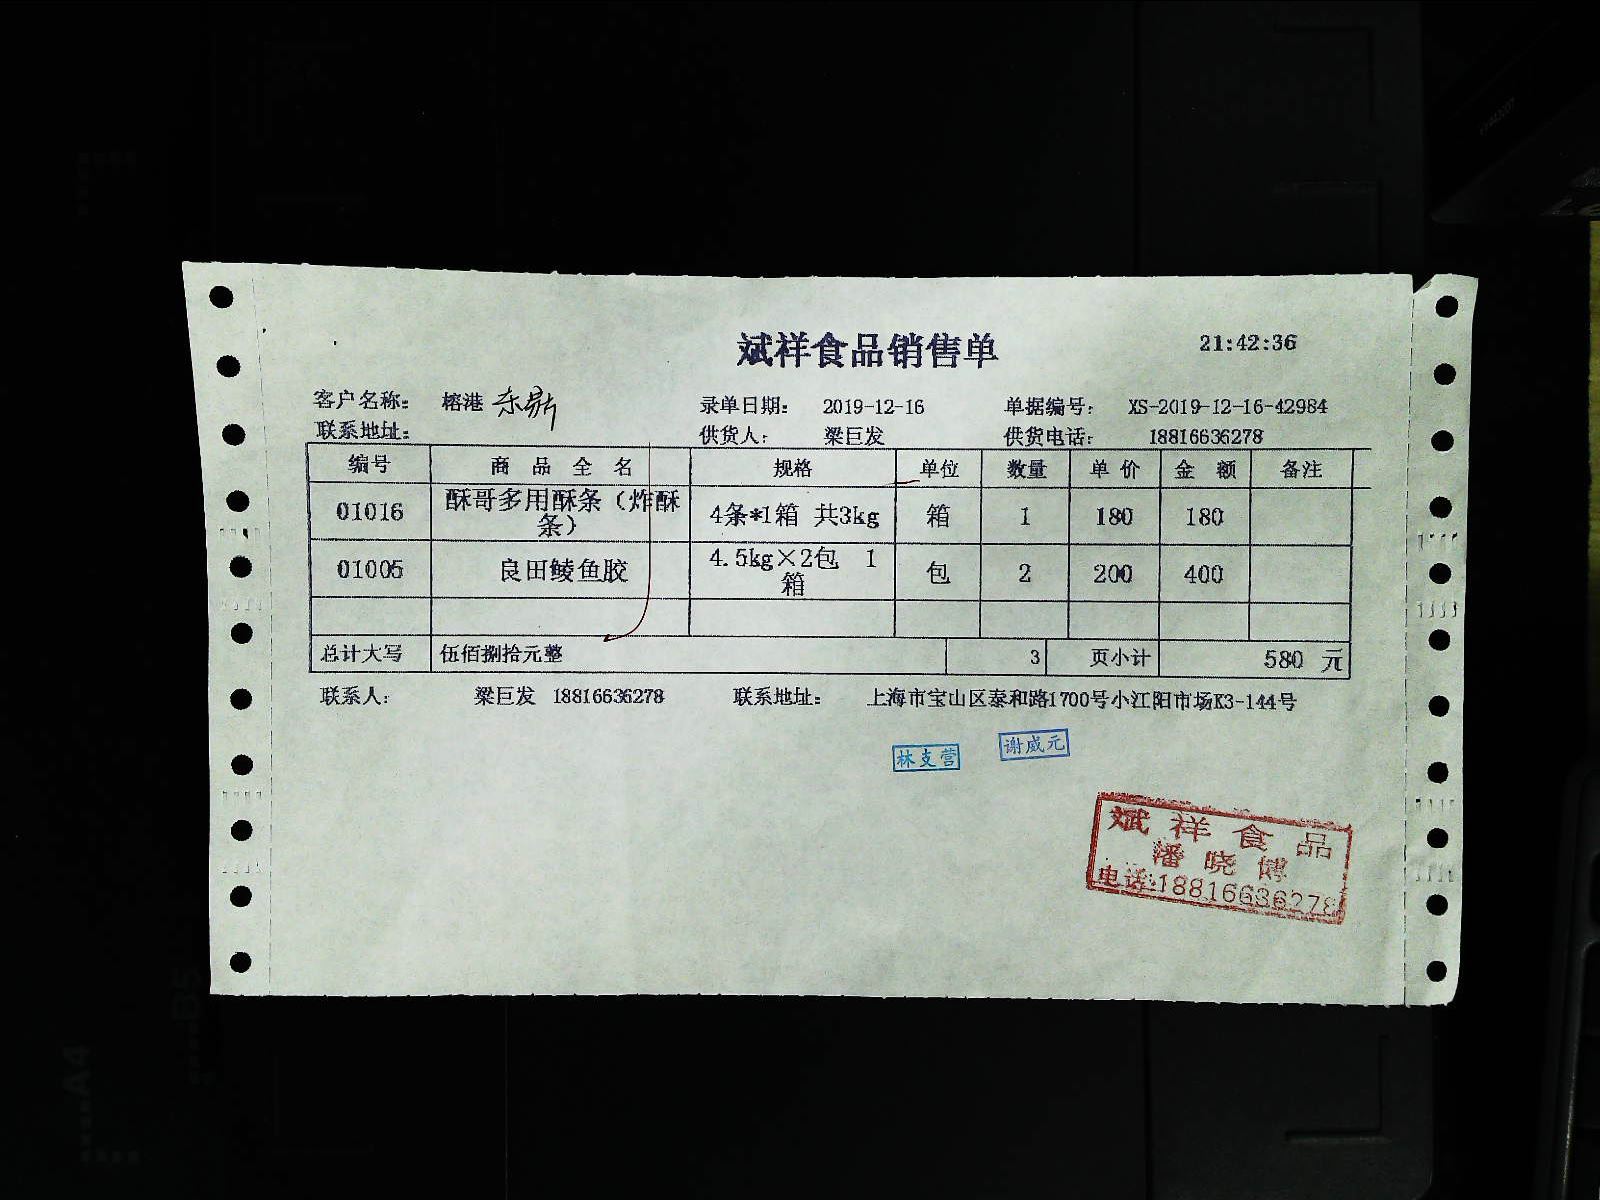 斌祥食品销售单 21:42:36
客户名称： 榕港 东鼎 录单日期： 2019-12-16 单据编号： XS-2019-12-16-42984
联系地址： 供货人： 梁巨发 供货电话： 18816636278
编号 商 品 全 名 规格 单位 数量 单 价 金 额 备注
01016 酥哥多用酥条（炸酥条） 4条*1箱 共3kg 箱 1 180 180
01005 良田鲮鱼胶 4.5kg×2包 1箱 包 2 200 400
总计大写 伍佰捌拾元整 3 页小计 580 元
联系人： 梁巨发 18816636278 联系地址： 上海市宝山区泰和路1700号小江阳市场K3-144号
林支营 谢威元
斌祥食品
潘晓傅
电话:18816636278
A4
B5